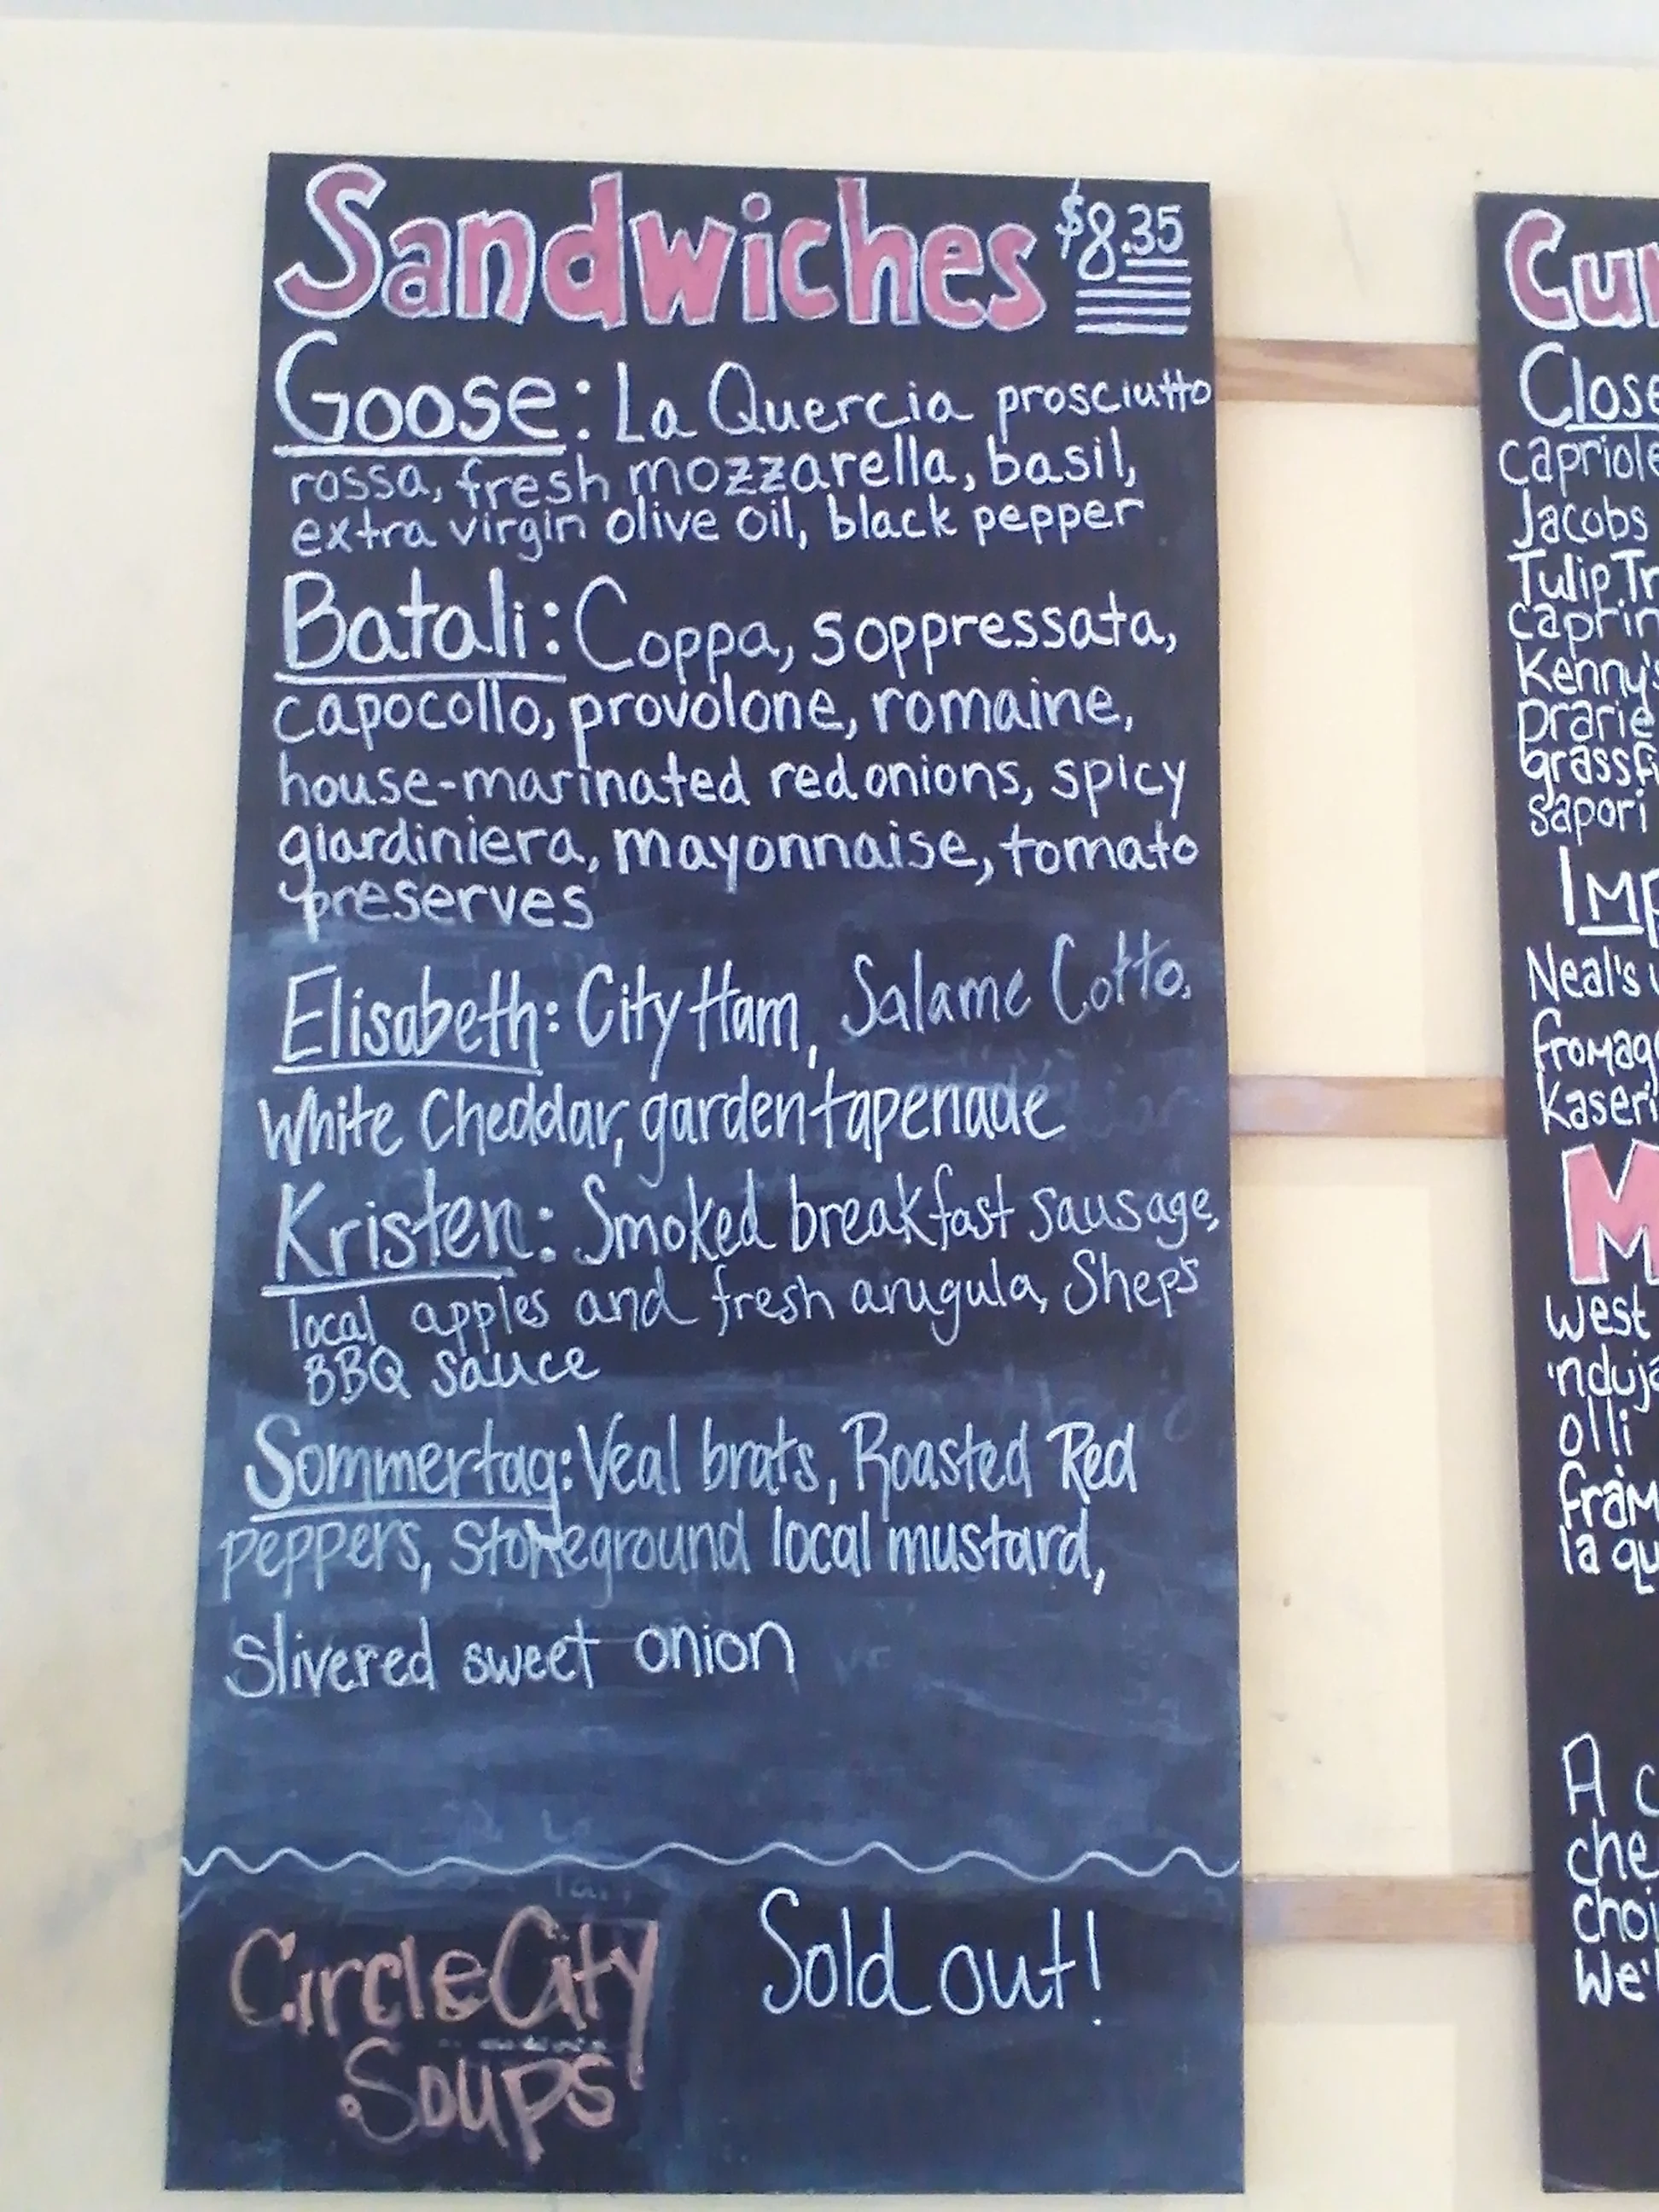 Sandwiches $8.35
Goose: La Quercia prosciutto
rossa, fresh mozzarella, basil,
extra virgin olive oil, black pepper
Batali: Coppa, soppressata,
capocollo, provolone, romaine,
house-marinated red onions, spicy
giardiniera, mayonnaise, tomato
preserves
Elisabeth: City Ham, Salame Cotto,
White Cheddar, garden tapenade
Kristen: Smoked breakfast sausage,
local apples and fresh arugula, Shep's
BBQ sauce
Sommertag: Veal brats, Roasted Red
peppers, Stoneground local mustard,
Slivered sweet onion
Circle City
Soups
Sold out!
Cur
Close
capriole
Jacobs
Tulip Tr
caprin
Kenny's
prarie
grassfi
sapori
Imp
Neal's
fromag
Kaseri
M
west
'nduja
olli
fram
la qu
A c
che
choi
We'l